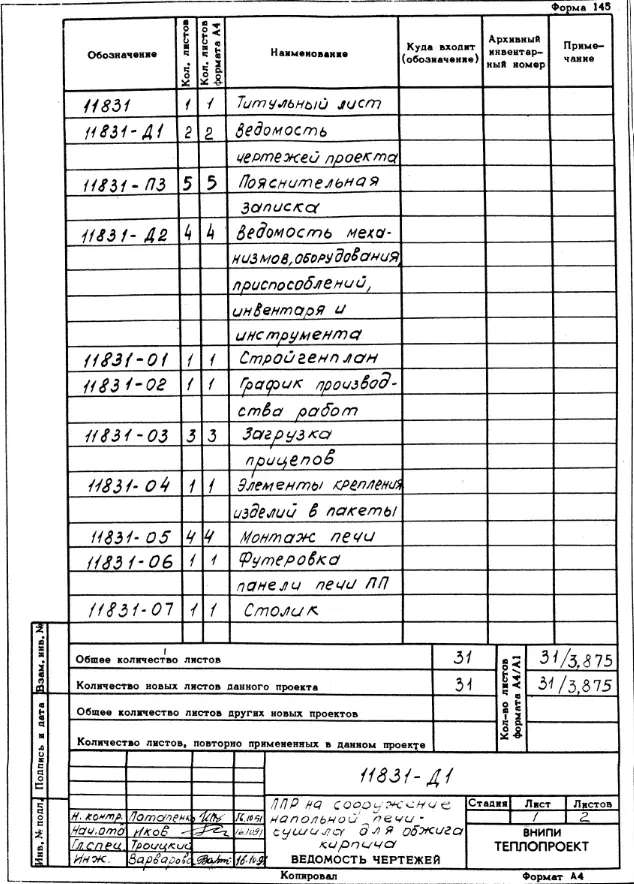 Форма 145
Обозначение Кол. листов Кол. листов формата А4 Наименование Куда входит (обозначение) Архивный инвентарный номер Примечание
11831 1 1 Титульный лист
11831-Д1 2 2 Ведомость
чертежей проекта
11831-ПЗ 5 5 Пояснительная
записка
11831-Д2 4 4 Ведомость меха-
низмов, оборудования,
приспособлений,
инвентаря и
инструмента
11831-01 1 1 Стройгенплан
11831-02 1 1 График производ-
ства работ
11831-03 3 3 Загрузка
прицепов
11831-04 1 1 Элементы крепления
изделий в пакеты
11831-05 4 4 Монтаж печи
11831-06 1 1 Футеровка
панели печи ПП
11831-07 1 1 Столик
Общее количество листов 31
Количество новых листов данного проекта 31
Общее количество листов других новых проектов
Количество листов, повторно примененных в данном проекте
Кол-во листов формата А4/А1
31/3,875
31/3,875
Взам. инв. №
Подпись и дата
Инв. № подл.
11831-Д1
Н. контр. Потапенко 16.10.91
Нач. отд Иков 16.10.91
Гл. спец. Троицкий
Инж. Варварова 16.10.91
ППР на сооружение
напольной печи-
сушила для обжига
кирпича
ВЕДОМОСТЬ ЧЕРТЕЖЕЙ
Стадия Лист Листов
1 2
ВНИПИ
ТЕПЛОПРОЕКТ
Копировал Формат А4